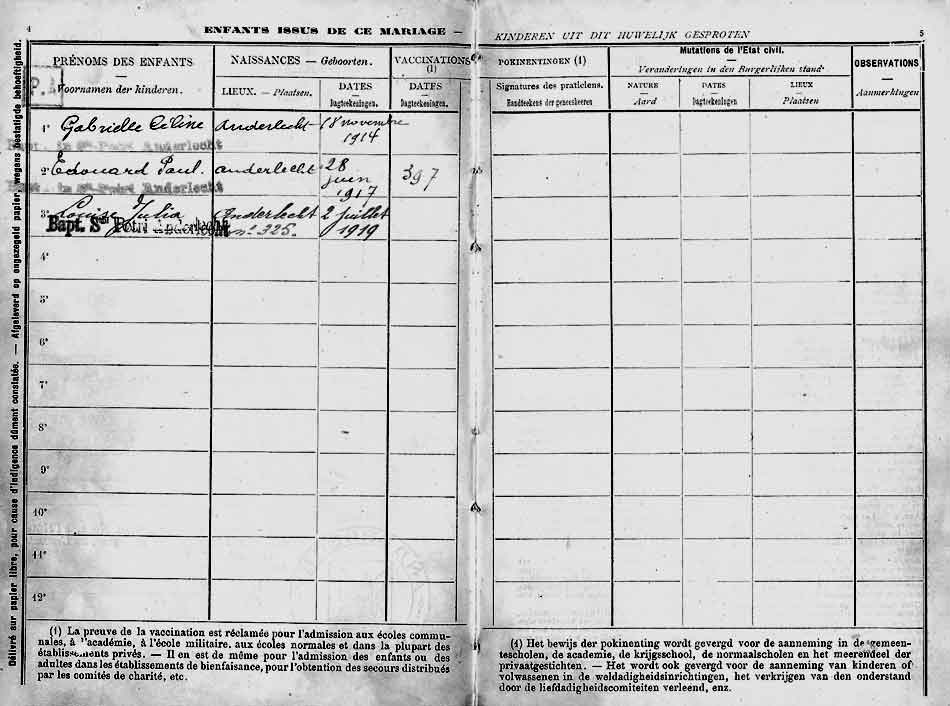 4
ENFANTS ISSUS DE CE MARIAGE —
KINDEREN UIT DIT HUWELIJK GESPROTEN
5
Délivré sur papier libre, pour cause d'indigence dûment constatée. — Afgeleverd op ongezegeld papier, wegens bestatigde behoeftigheid.
PRÉNOMS DES ENFANTS
Voornamen der kinderen.
P.
NAISSANCES — Geboorten.
LIEUX. — Plaatsen.
DATES
Dagteekeningen.
VACCINATIONS
(1)
DATES
Dagteekeningen.
POKINENTINGEN (1)
Signatures des praticiens.
Handteekens der geneesheeren
Mutations de l'Etat civil.
Veranderingen in den Burgerlijken stand
NATURE
Aard
DATES
Dagteekeningen
LIEUX
Plaatsen
OBSERVATIONS
Aanmerkingen
1° Gabrielle Céline Anderlecht 18 novembre
1914
Bapt. in Sti Petri Anderlecht
2° Edouard Paul. anderlecht 28
juin
1917
397
Bapt. in Sti Petri Anderlecht
3° Louise Julia Anderlecht 2 juillet
Bapt. Sti Petri Anderlecht n° 325. 1919
4°
5°
6°
7°
8°
9°
10°
11°
12°
(1) La preuve de la vaccination est réclamée pour l'admission aux écoles commu-
nales, à l'académie, à l'école militaire. aux écoles normales et dans la plupart des
établissements privés. — Il en est de même pour l'admission des enfants ou des
adultes dans les établissements de bienfaisance, pour l'obtention des secours distribués
par les comités de charité, etc.
(1) Het bewijs der pokinenting wordt gevergd voor de aanneming in de gemeen-
tescholen, de academie, de krijgsschool, de normaalscholen en het meerendeel der
privaatgestichten. — Het wordt ook gevergd voor de aanneming van kinderen of
volwassenen in de weldadigheidsinrichtingen, het verkrijgen van den onderstand
door de liefdadigheidscomiteiten verleend, enz.